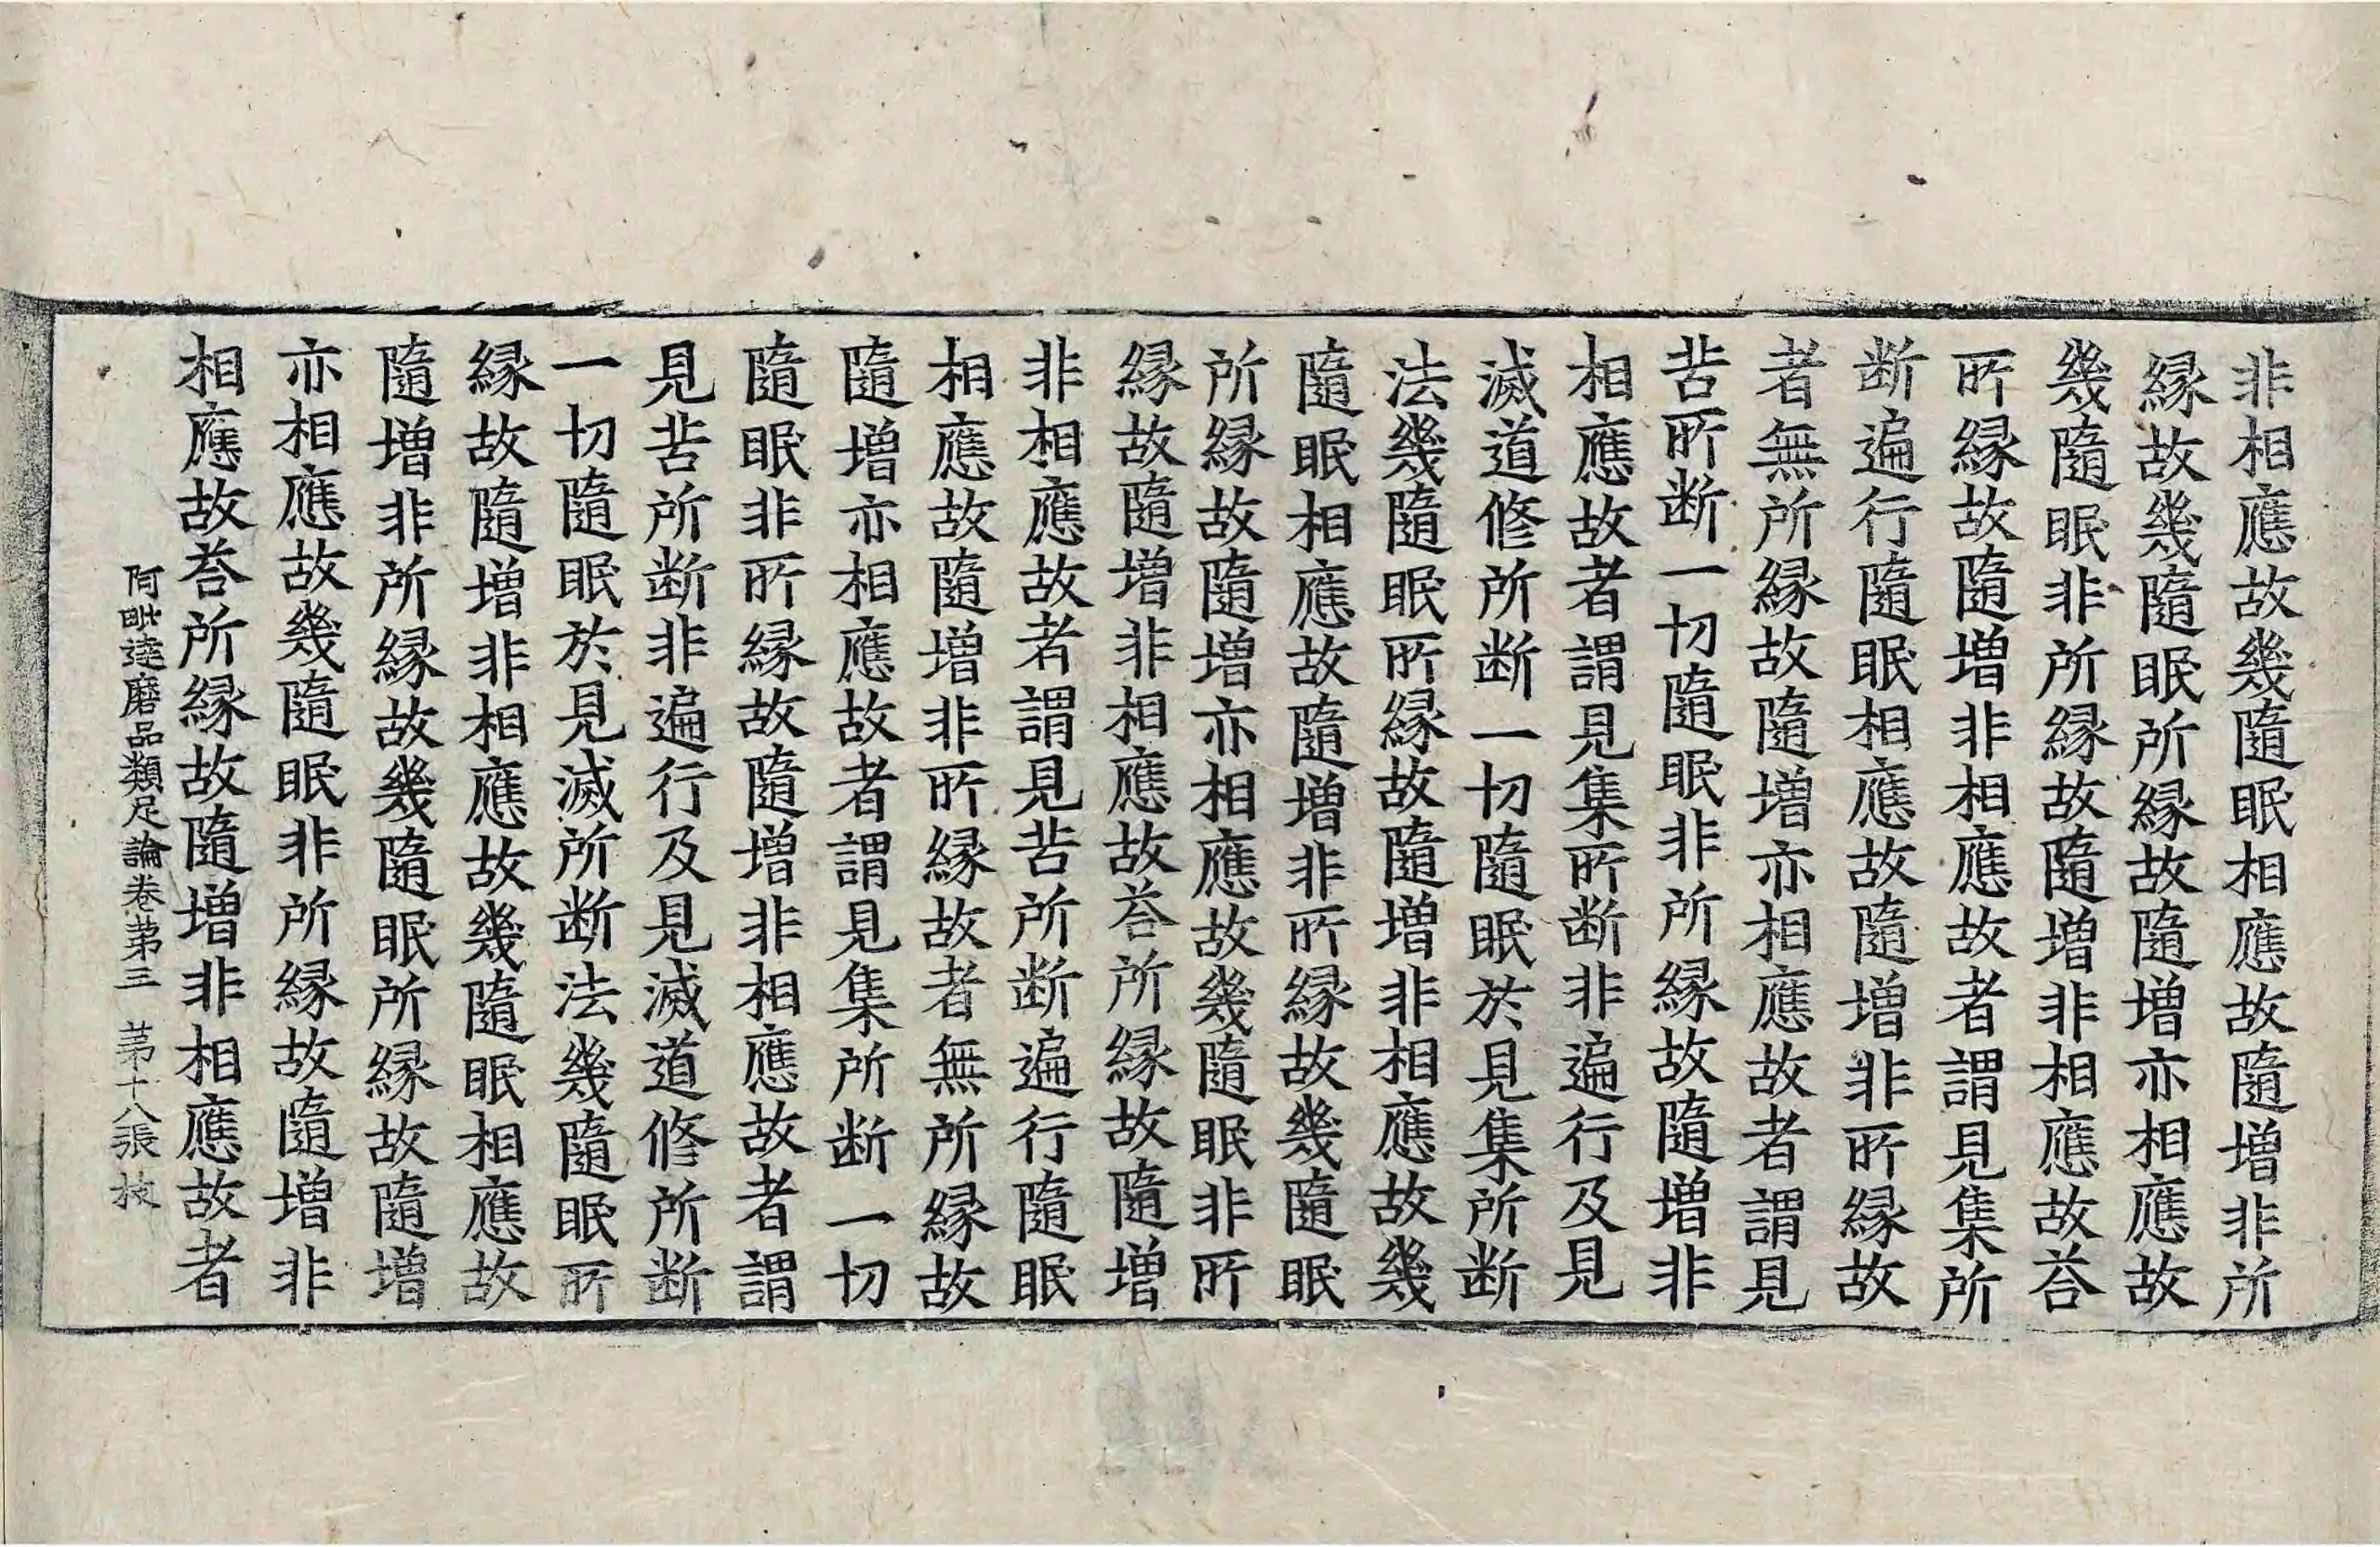 非相應故幾隨眠相應故隨增非所
縁故幾隨眠所縁故隨增亦相應故
幾隨眠非所縁故隨增非相應故荅
所縁故隨增非相應故者謂見集所
断遍行隨眠相應故隨增非所縁故
者無所縁故隨增亦相應故者謂見
苦所断一切隨眠非所縁故隨增非
相應故者謂見集所断非遍行及見
滅道修所断一切隨眠於見集所断
法幾隨眠所縁故隨增非相應故幾
隨眠相應故隨增非所縁故幾隨眠
所縁故隨增亦相應故幾隨眠非所
縁故隨增非相應故荅所縁故隨增
非相應故者謂見苦所断遍行隨眠
相應故隨增非所縁故者無所縁故
隨增亦相應故者謂見集所断一切
隨眠非所縁故隨增非相應故者謂
見苦所断非遍行及見滅道修所断
一切隨眠於見滅所断法幾隨眠所
縁故隨增非相應故幾隨眠相應故
隨增非所縁故幾隨眠所縁故隨增
亦相應故幾隨眠非所縁故隨增非
相應故荅所縁故隨增非相應故者
阿毗達磨品類足論卷第三 第十八張 枝